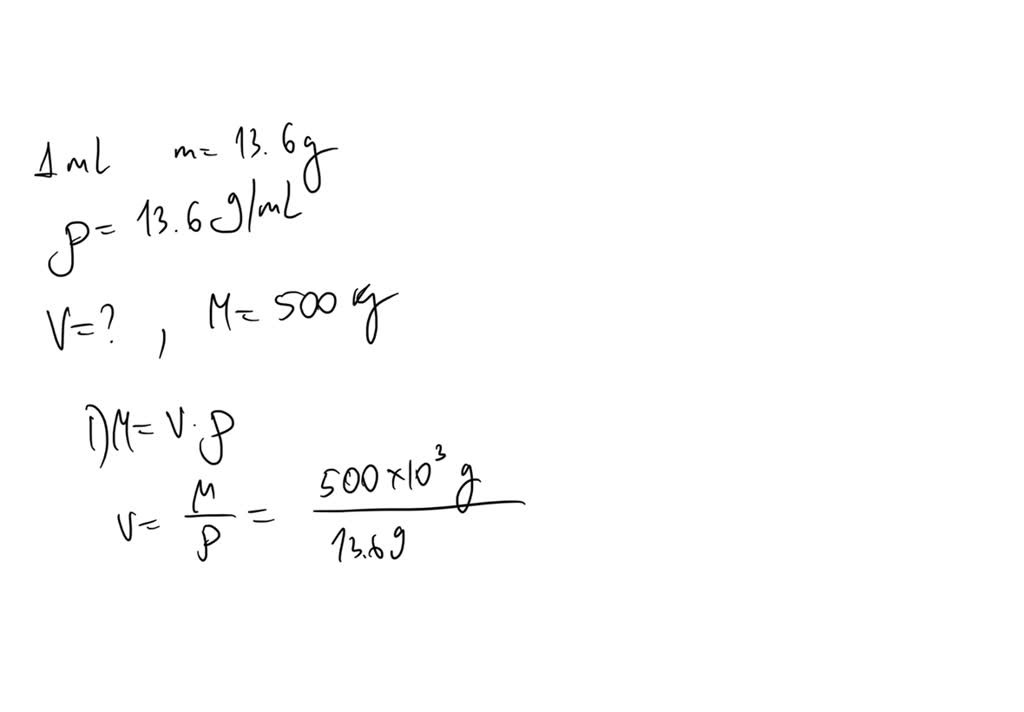 1 mL m= 13.6g
ρ= 13.6 g/mL
V=? , M= 500 kg
1) M= V·ρ
V= M/ρ = 500×10³ g / 13.6g